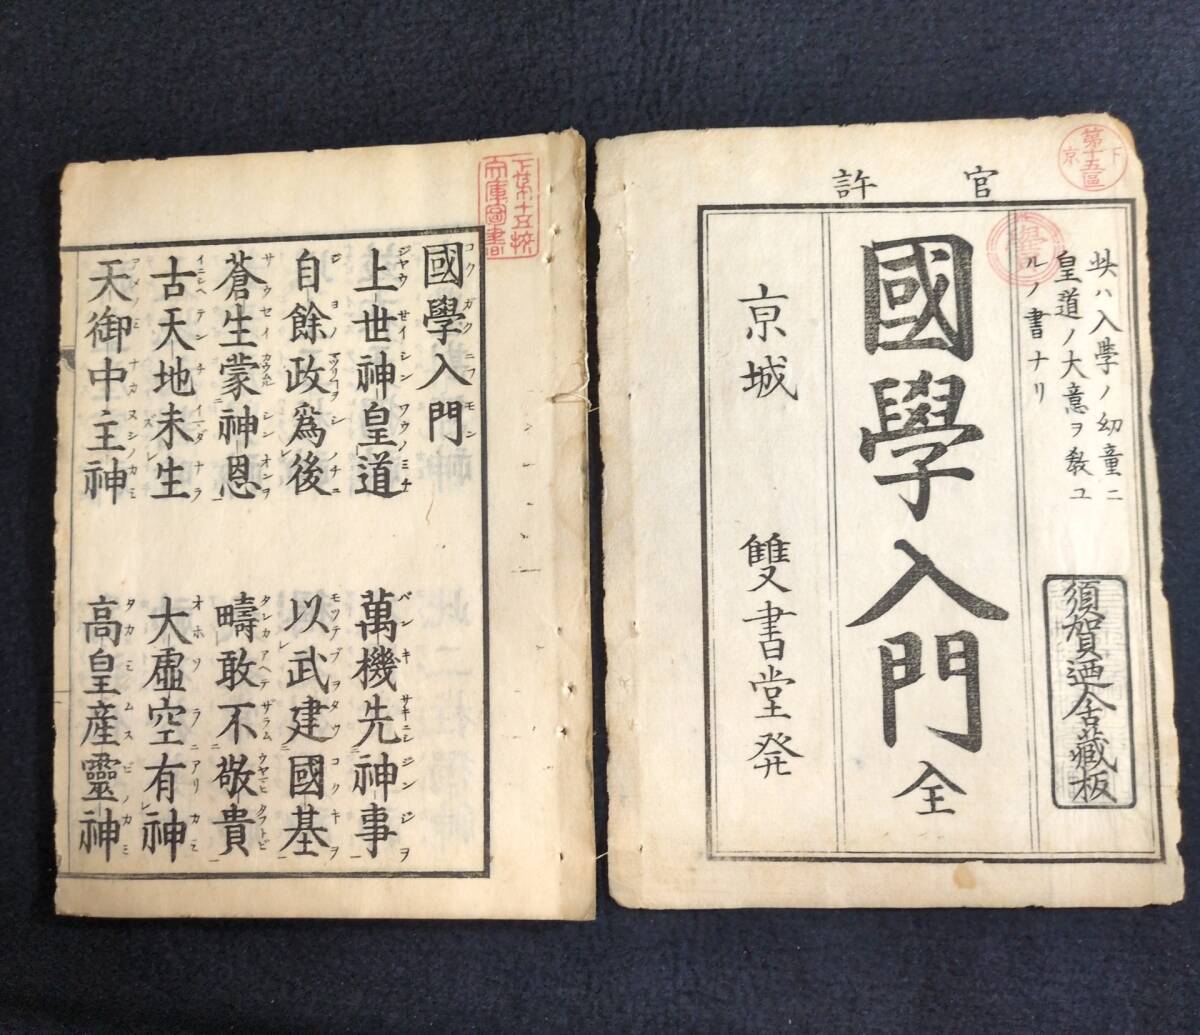 官許
第十五區
下京
此ハ入學ノ幼童ニ
皇道ノ大意ヲ教ユ
ルノ書ナリ
須賀廼舍藏板
國學入門 全
京城 雙書堂発
國學入門
上世神皇道 萬機先神事
自餘政爲後 以武建國基
蒼生蒙神恩 疇敢不敬貴
古天地未生 大虛空有神
天御中主神 高皇産靈神